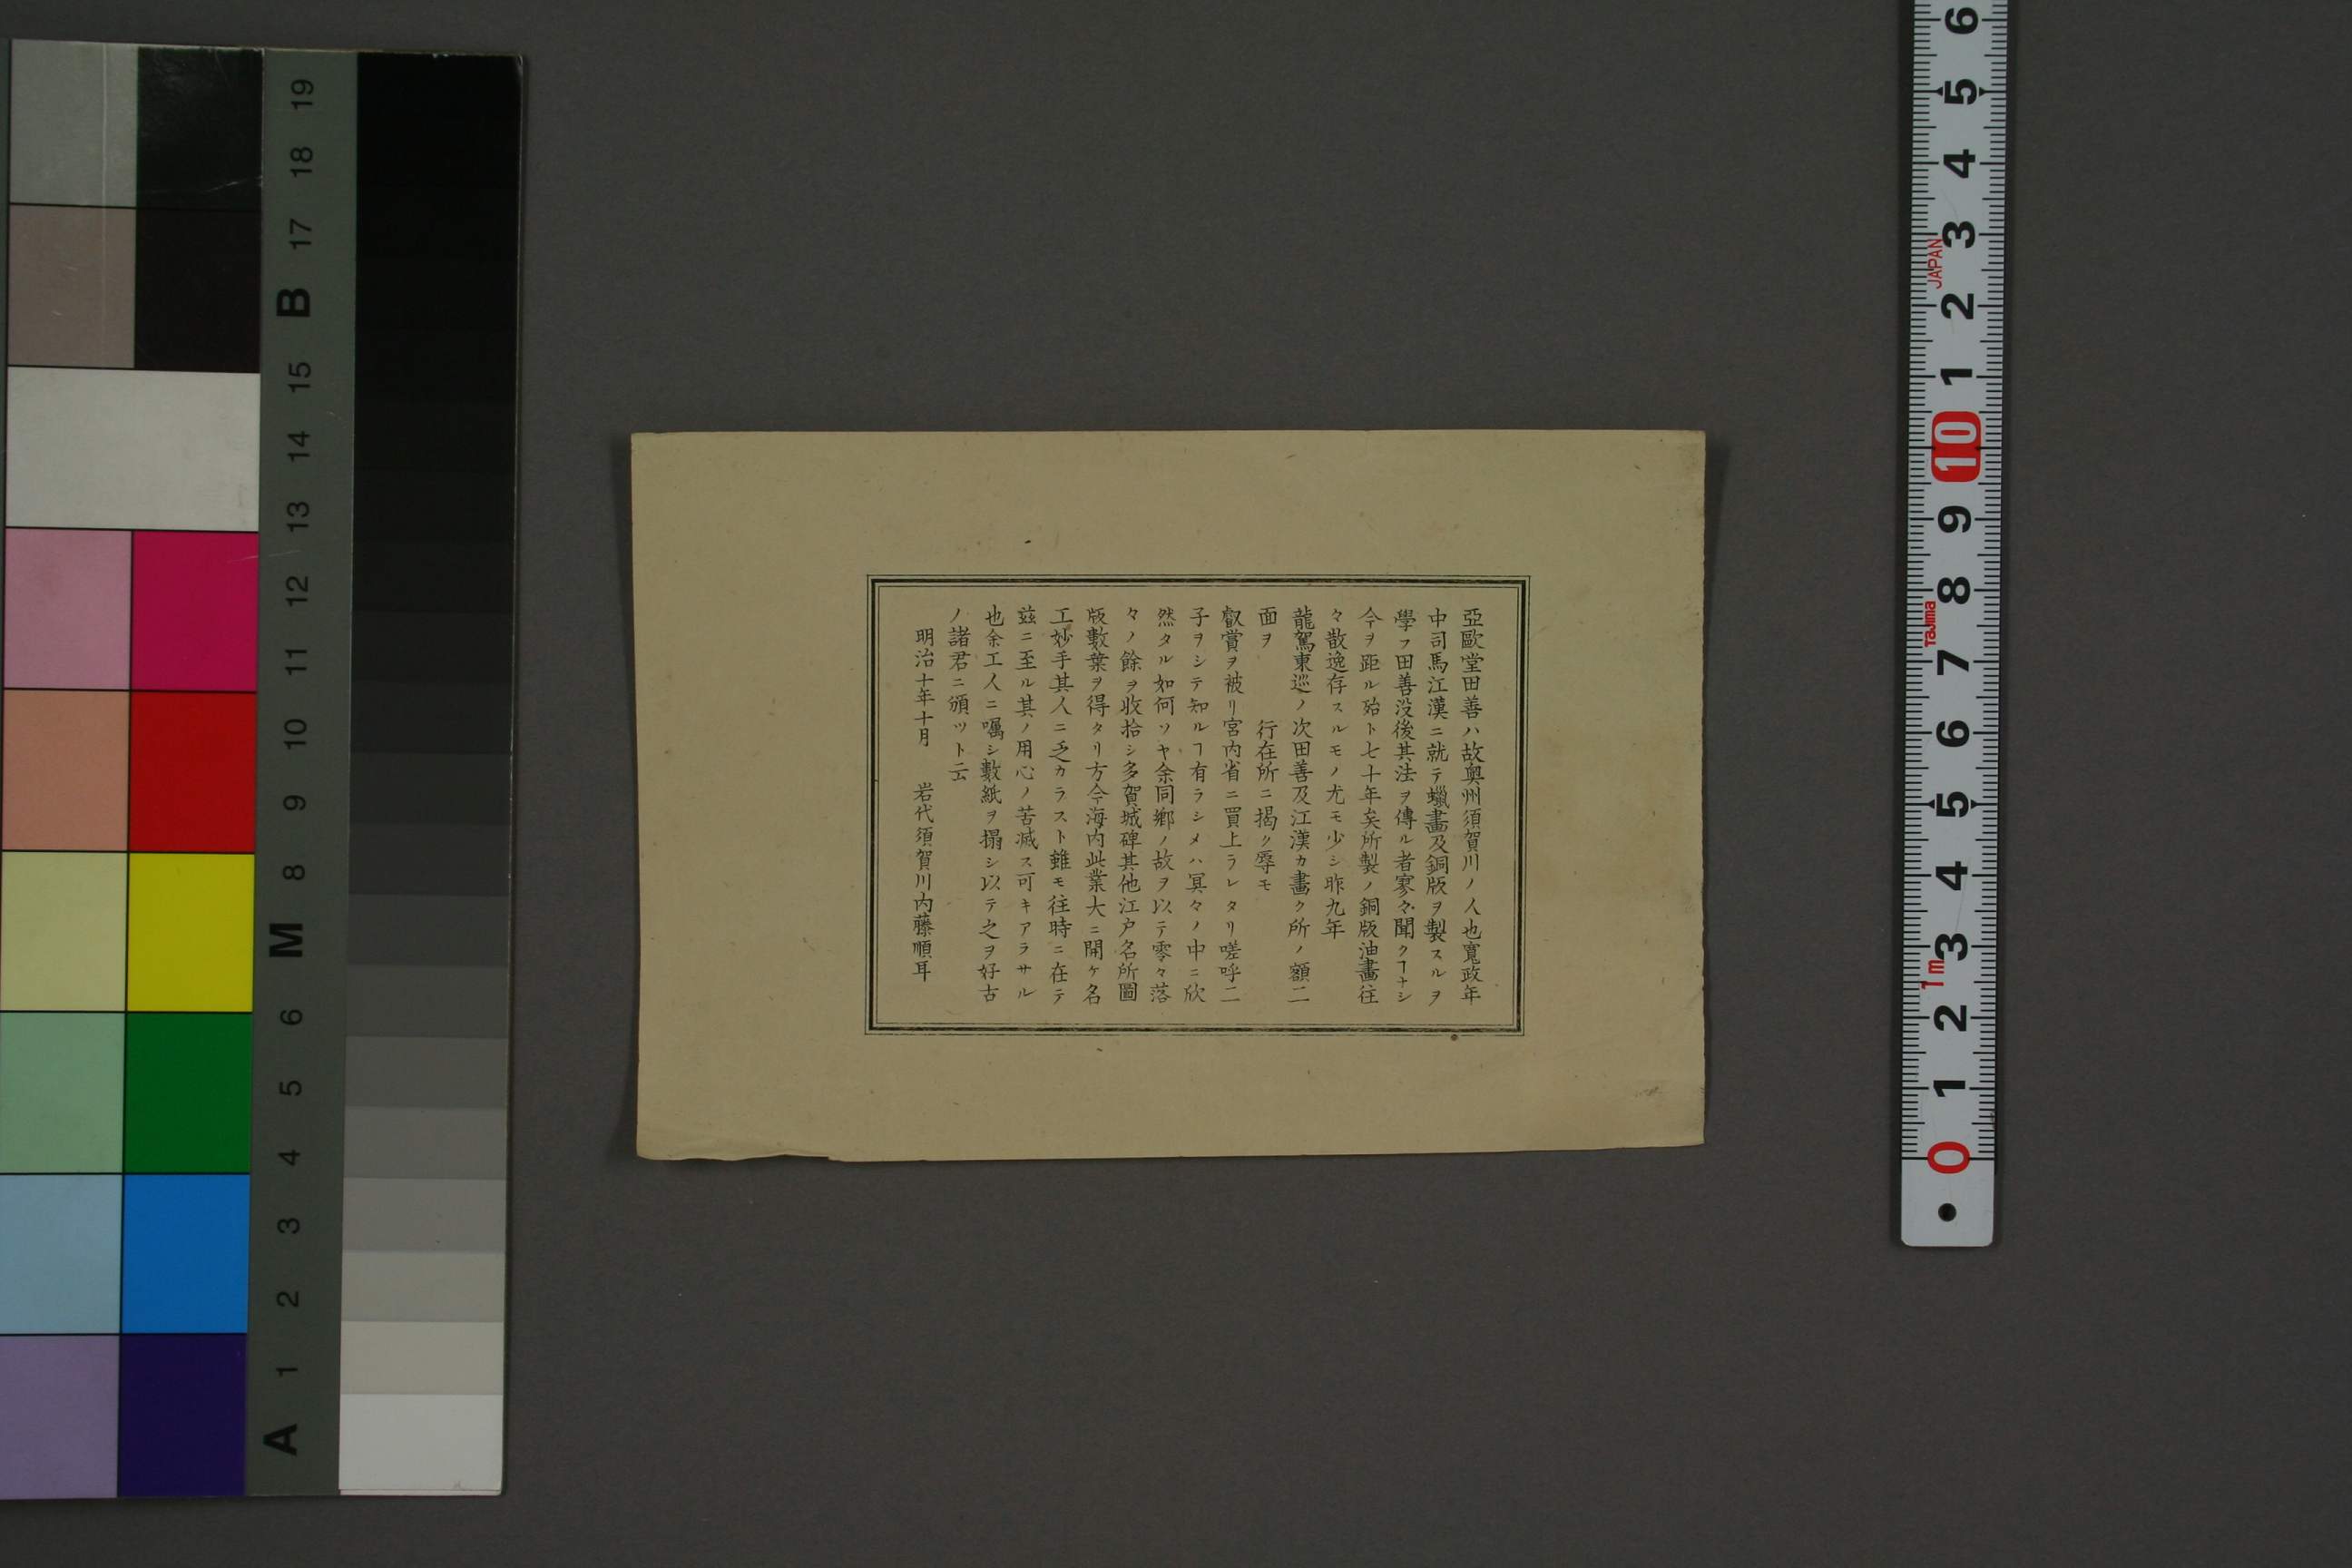 亞歐堂田善ハ故奥州須賀川ノ人也寛政年
中司馬江漢ニ就テ蠟畫及銅版ヲ製スルヲ
學フ田善没後其法ヲ傳ル者寥々聞クヿナシ
今ヲ距ル殆ト七十年矣所製ノ銅版油畫往
々散逸存スルモノ尤モ少シ昨九年
龍駕東巡ノ次田善及江漢カ畫ク所ノ額二
面ヲ　　　行在所ニ掲ク辱モ
叡賞ヲ被リ宮内省ニ買上ラレタリ嗟呼二
子ヲシテ知ルヿ有ラシメハ冥々ノ中ニ欣
然タル如何ソヤ余同郷ノ故ヲ以テ零々落
々ノ餘ヲ收拾シ多賀城碑其他江戸名所圖
版數葉ヲ得タリ方今海内此業大ニ開ケ名
工妙手其人ニ乏カラスト雖モ往時ニ在テ
玆ニ至ル其ノ用心ノ苦滅ス可キアラサル
也余工人ニ囑シ數紙ヲ搨シ以テ之ヲ好古
ノ諸君ニ頒ツト云
明治十年十月　岩代須賀川内藤順耳
A 1 2 3 4 5 6 M 8 9 10 11 12 13 14 15 B 17 18 19
0 1 2 3 4 5 6 7 8 9 10 1 2 3 4 5 6
1m
Tajima
JAPAN